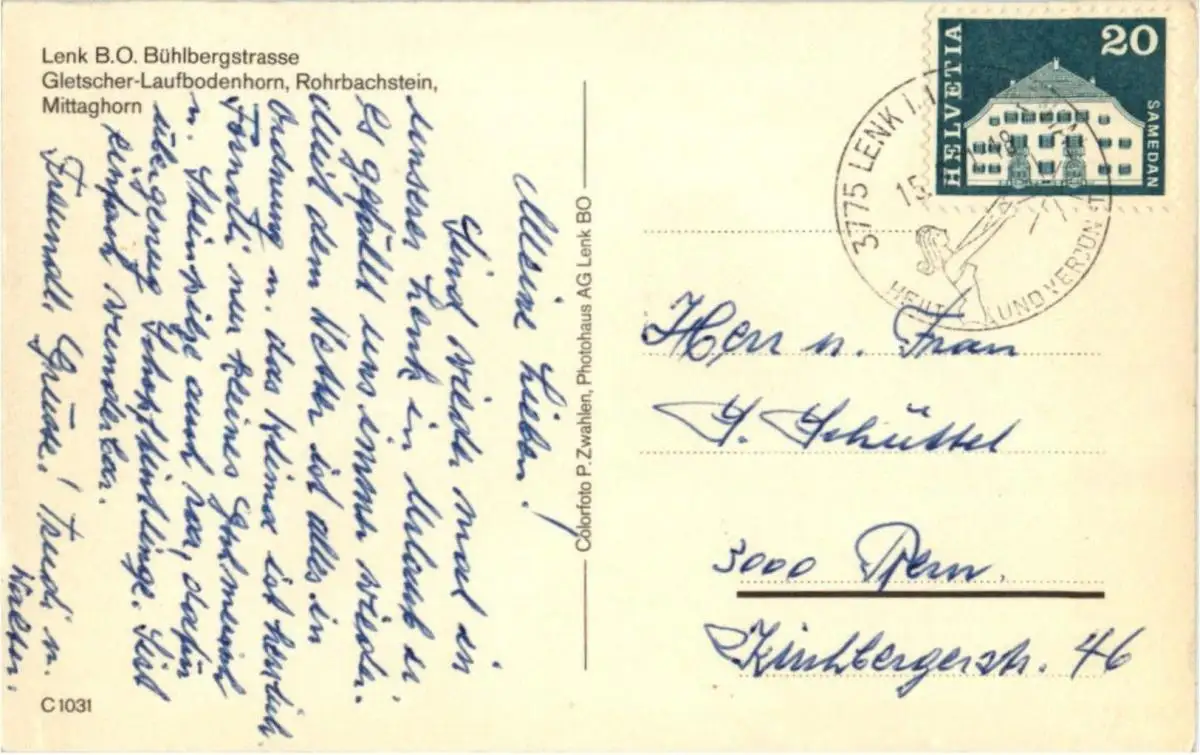 Lenk B.O. Bühlbergstrasse
Gletscher-Laufbodenhorn, Rohrbachstein,
Mittaghorn
Meine Lieben!
Sind wieder mal in
unserer Lenk in Urlaub u.
Es gefällt uns immer wieder.
Mit dem Wetter ist alles in
Ordnung u. das Klima ist herrlich
nur keines
u. Steinpilze auch rar, dafür
übergenug Schopftintlinge. Sind
einfach wunderbar.
Freundl. Grüsse! Trudi u.
Walter.
C1031
Colorfoto P. Zwahlen, Photohaus AG Lenk BO
HELVETIA
20
SAMEDAN
3775 LENK I.
15
HEILT UND VERJÜNGT
Herr u. Frau
Schüttel
3000 Bern
Kirchbergerstr. 46